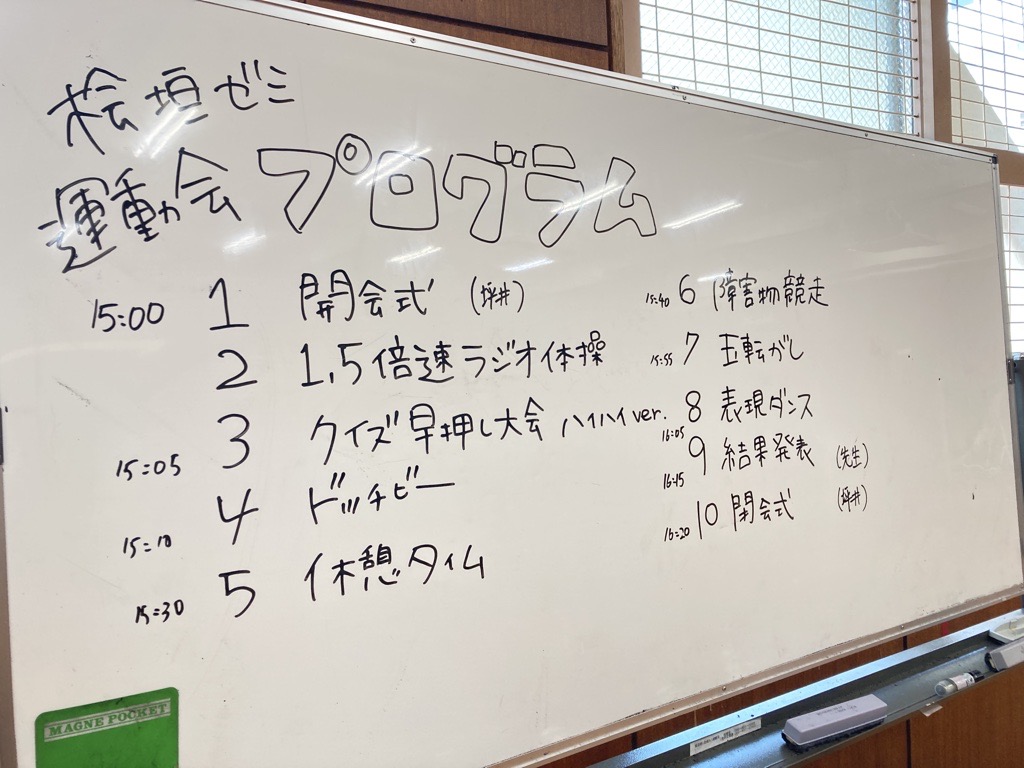 桧垣ゼミ
運動会 プログラム
15:00 1 開会式 (坪井)
2 1.5倍速ラジオ体操
15:05 3 クイズ早押し大会 ハイハイver.
15:10 4 ドッチビー
15:30 5 休憩タイム
15:40 6 障害物競走
15:55 7 玉転がし
16:05 8 表現ダンス
16:15 9 結果発表 (先生)
16:20 10 閉会式 (坪井)
MAGNE POCKET